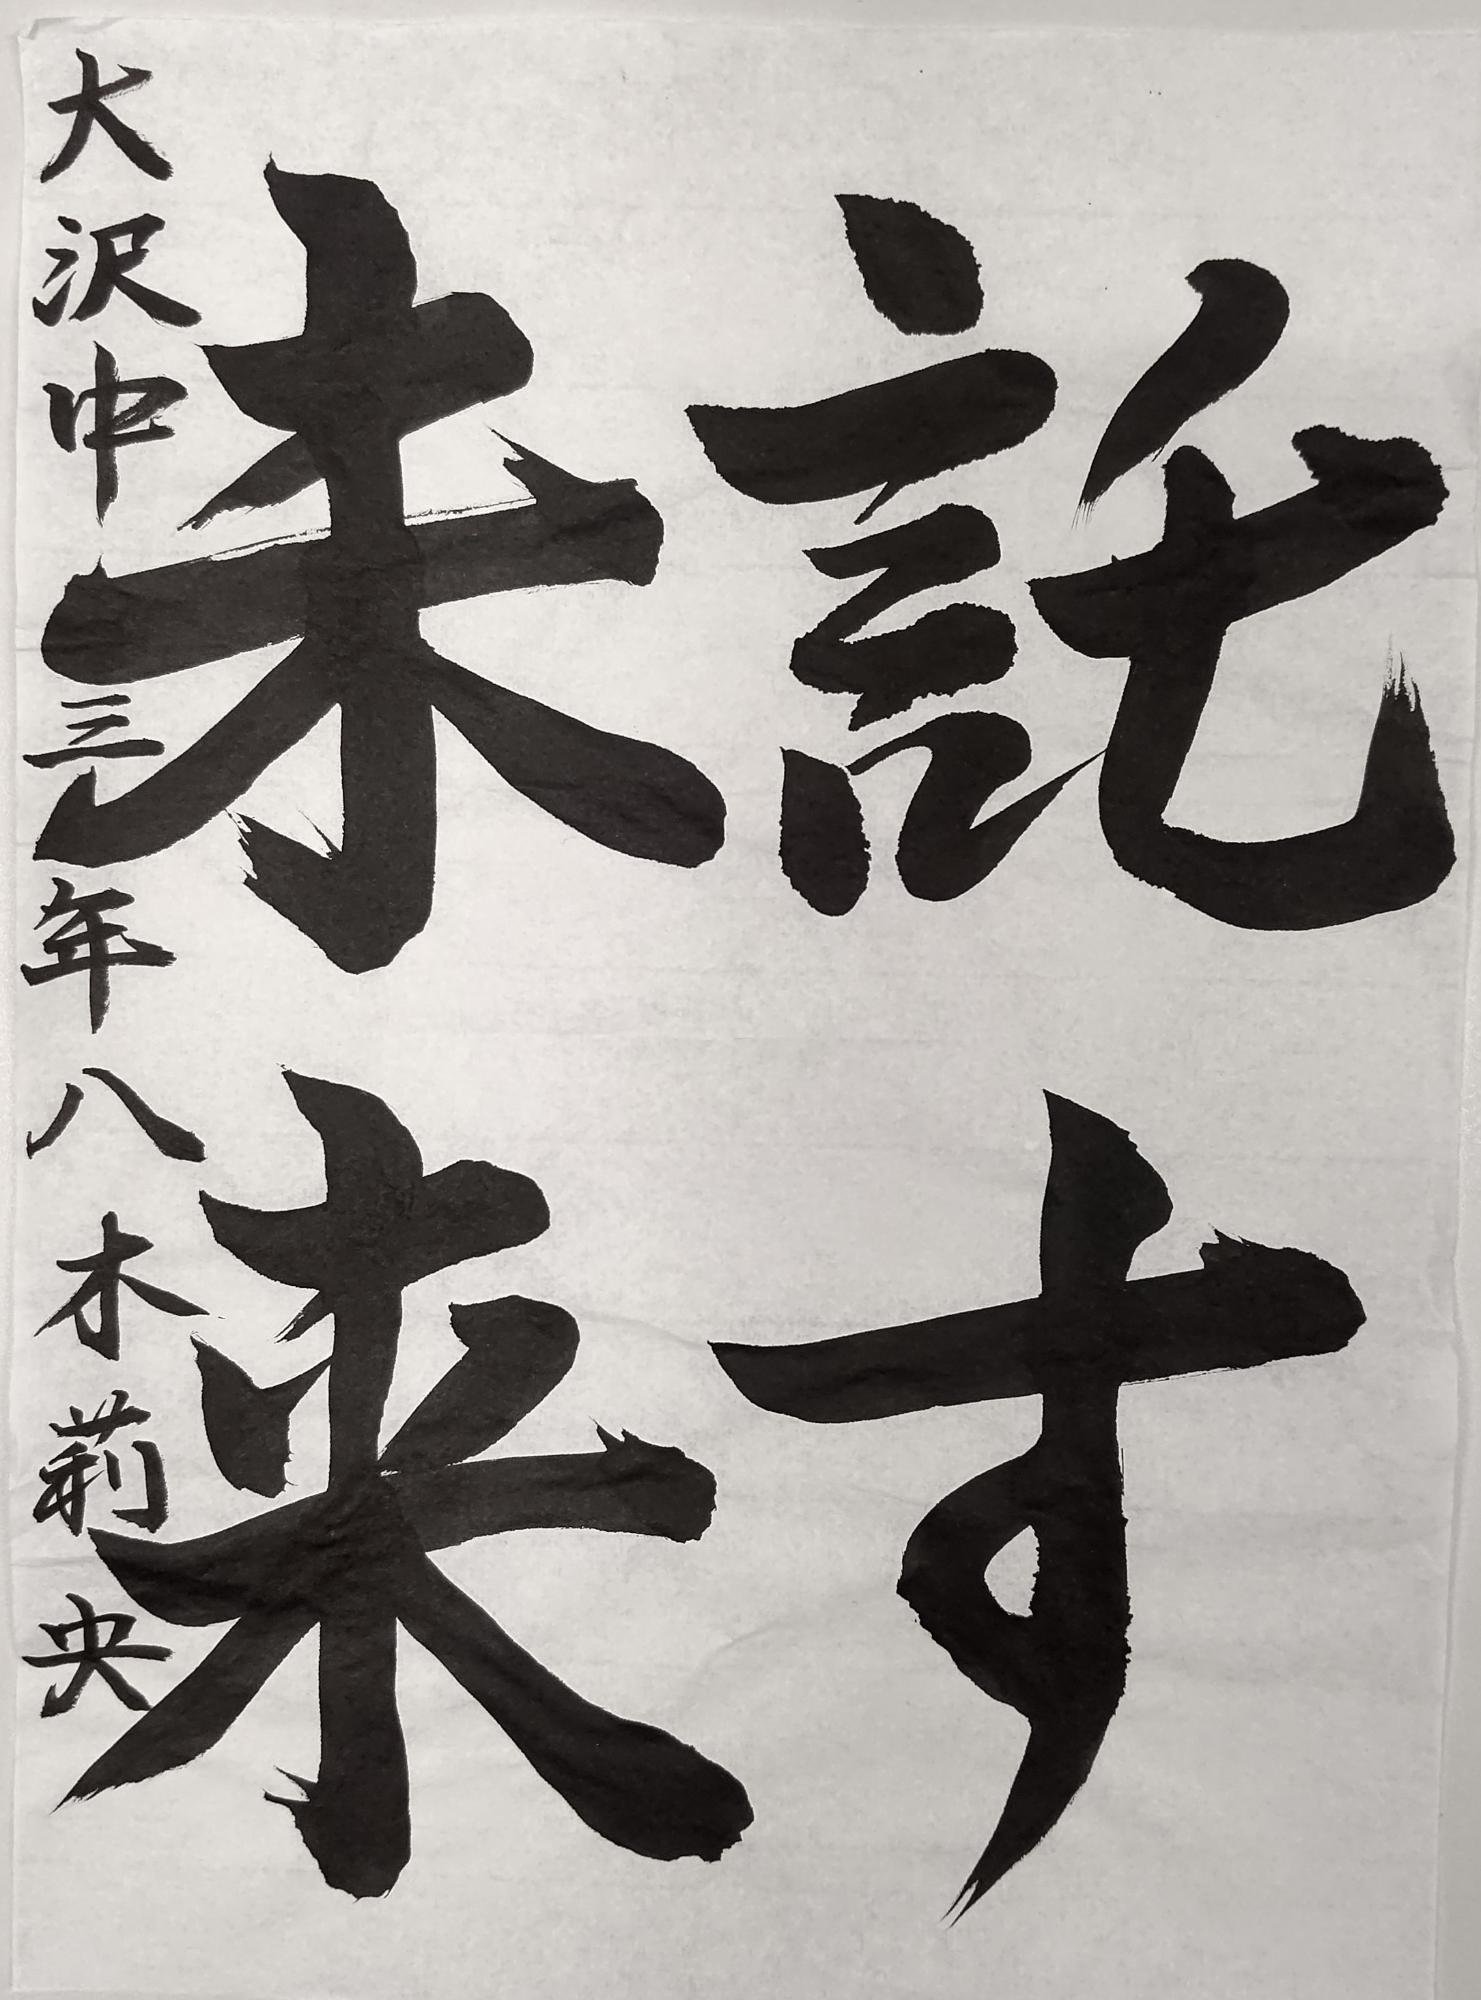 託す
未来
大沢中三年八木莉央